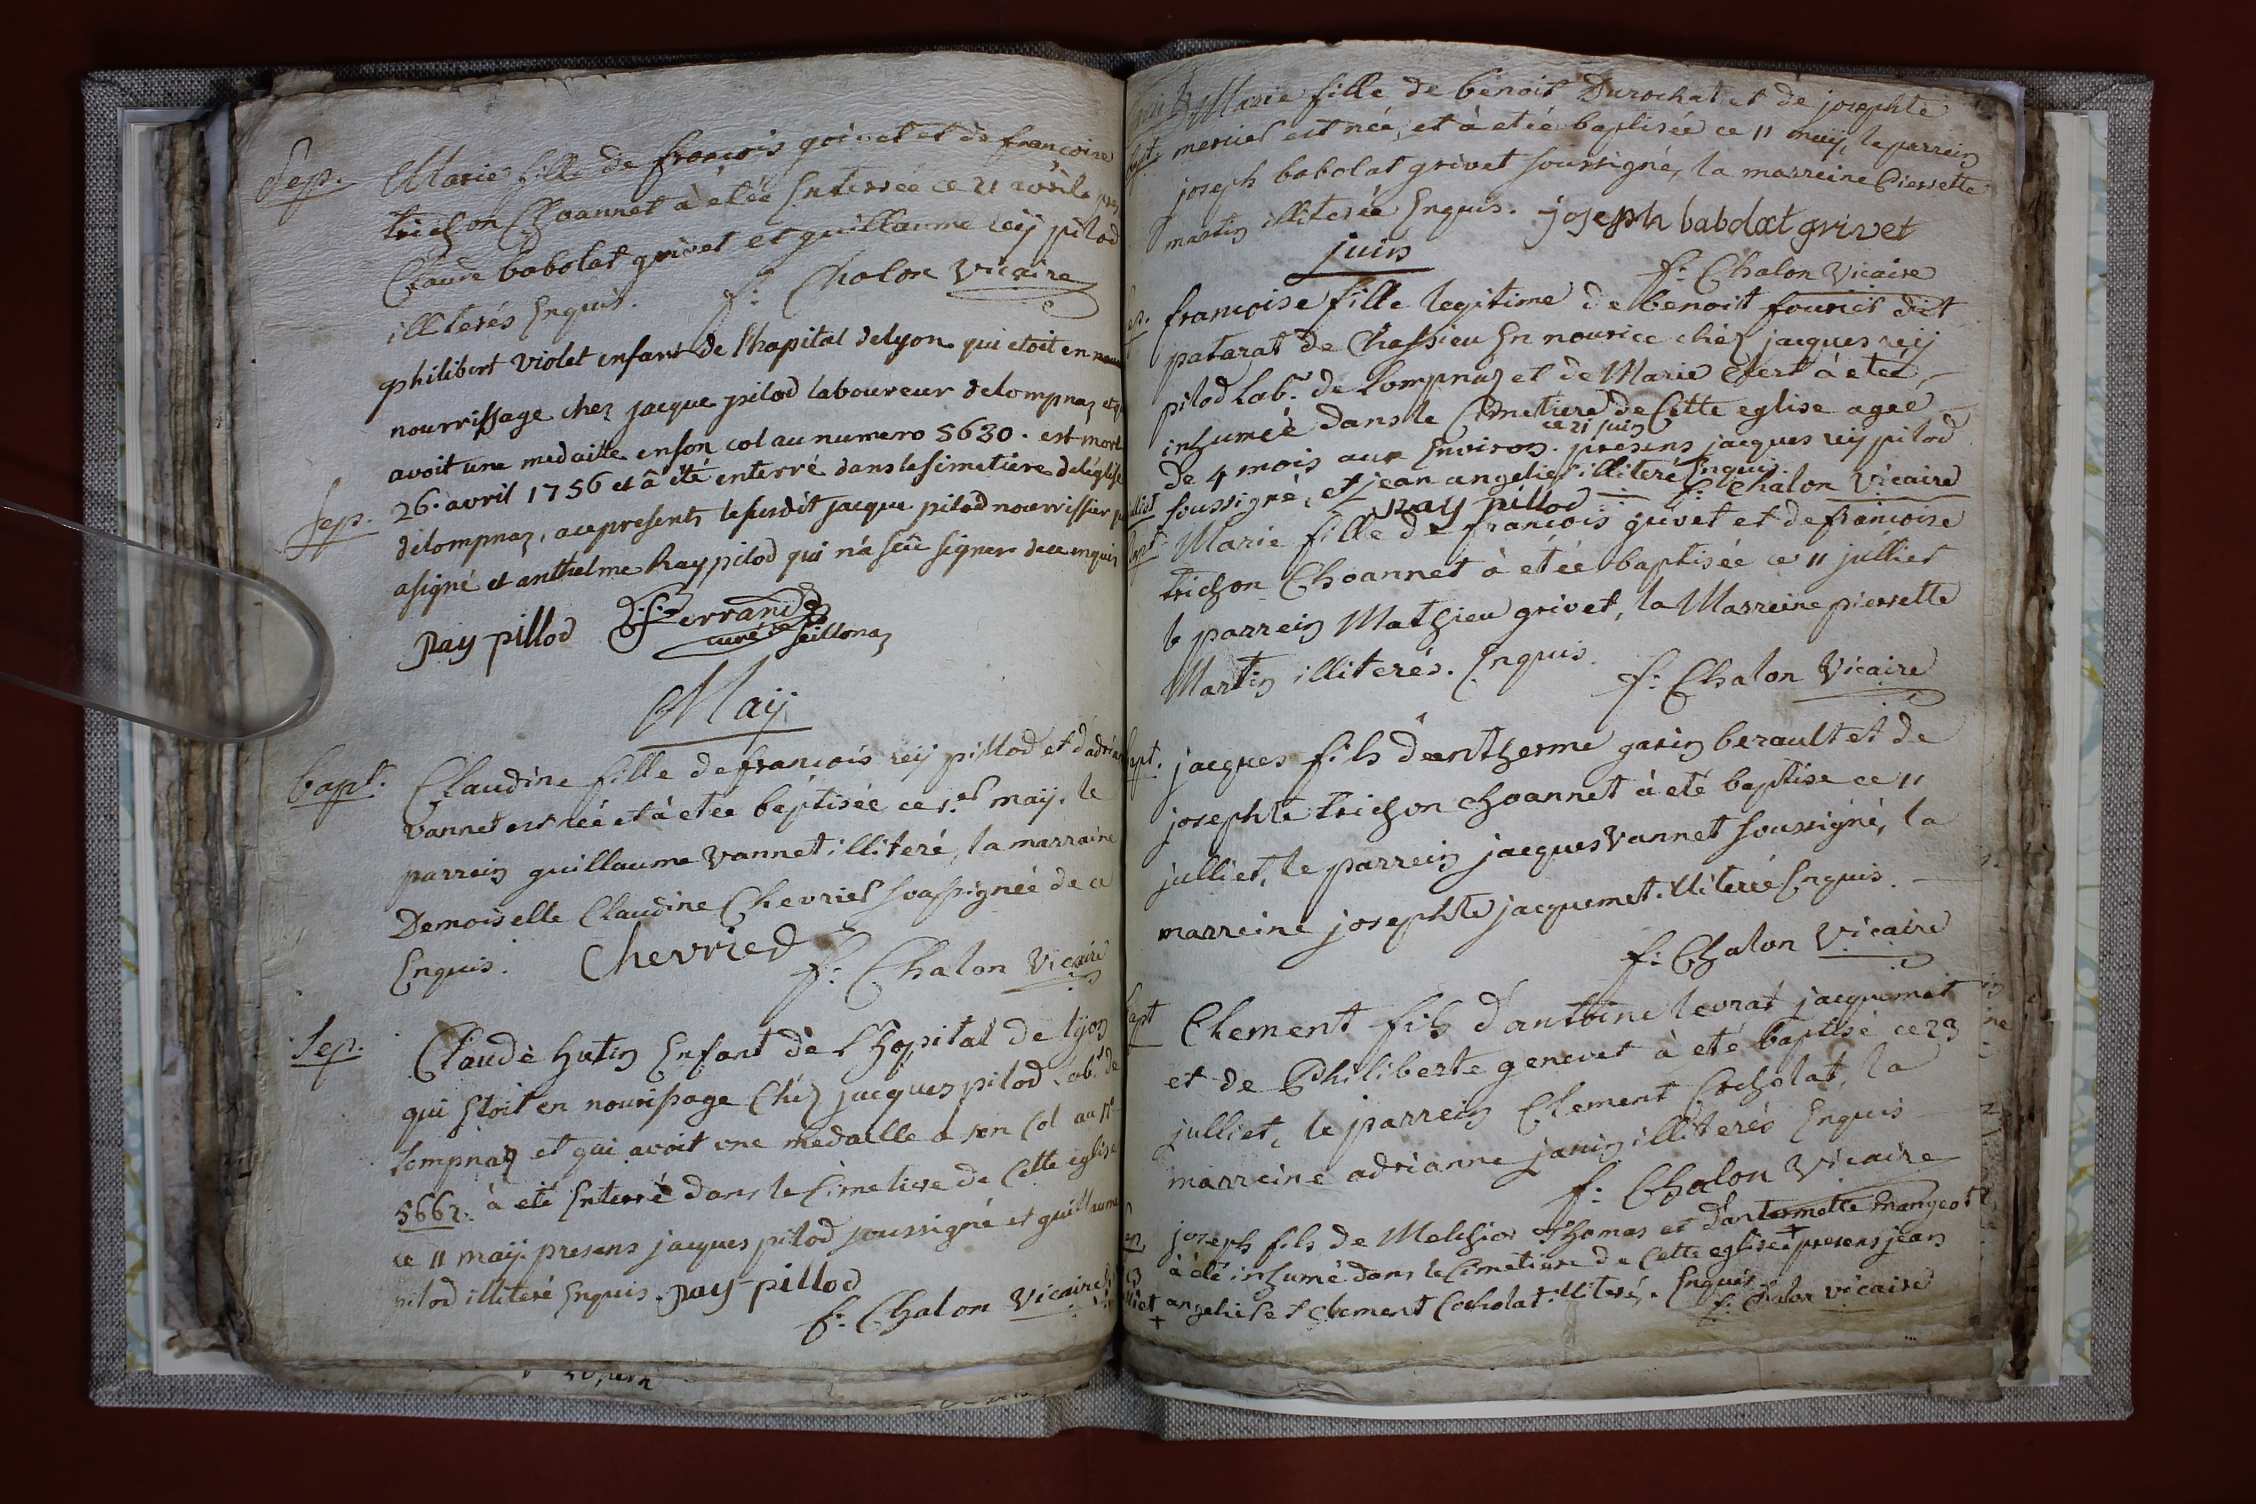 Sep. Marie fille de francois grivet et de francoise
trichon Choannet à étée Enterrée ce 21 avrile
Claude babolat grivet et guillaume reÿ pilod
illiterés Enquis. f: Chalon Vicaire
philibert violet enfant de l'hapital delyon qui etoit en
nourrissage chez jacque pilod laboureur delompnaz
avoit une medaille enson col au numero 5630. est mort
Sep. 26. avril 1756 et â été enterré dans le simetiere deléglise
delompnaz, ace presents lesusdit jacque pilod nourrissier
asigné et anthelme Ray pilod qui n'a sçû signer dece enquis
Ray pillod Ferrand
curé de seillonaz
Maÿ
bapt. Claudine fille de francois reÿ pillod et d'adrianne
vannet est née et à etée baptisée ce 1.er maÿ. le
parrein guillaume Vannet illiteré, la marraine
Demoiselle Claudine Chevrier soussignée de ce
Enquis. Chevrier
f: Chalon Vicaire
Sep. Claude hutin Enfant de l'hopital de lÿon
qui Etoit en nourissage Chéz jacques pilod lab.r de
Lompnaz et qui avoit une medaille a son Col au N.o
5662. à eté Enterré dans le Cimetiere de Cette eglise
ce 11 maÿ presens jacques pilod soussigné et guillaume
pilod illiteré Enquis. Ray pillod
f: Chalon Vicaire
Marie fille de benoit Durochat et de josephte
mercier est née, et à etée baptisée ce 11 maÿ, le parrein
joseph babolat grivet soussigné, la marreine Pierrette
martin illiterée Enquis. joseph babolat grivet
juin
f: Chalon Vicaire
francoise fille legitime de benoit fournier dit
patarat de Chassieu En nourice chéz jacques reÿ
pilod Lab.r de Lompnaz et de Marie à etée
inhumée dans le Cimetiere de Cette eglise agée
ce 21 juin
de 4 mois aux Environ. presens jacques reÿ pilod
soussigné, et jean angelier illiteré Enquis.
Ray pillod f: Chalon Vicaire
bapt. Marie fille de francois grivet et de francoise
trichon Choannet à etée baptisée ce 11 julliet
le parrein Mathieu grivet, la Marreine pierrette
Martin illiterés. Enquis.
f: Chalon Vicaire
bapt. jacques fils d'antherme garin berault et de
josephte trichon choannet à eté baptise ce 11
julliet, le parrein jacques Vannet soussigné, la
marreine josephte jacquemet illiterée Enquis.
f: Chalon Vicaire
bapt Clement fils d'antoine levrat jacquemet
et de Philiberte genevet à eté baptisé ce 23
julliet, le parrein Clement Cocholat, la
marreine adrianne janin illiterés Enquis
f: Chalon Vicaire
joseph fils de Melchior Thomas et d'antermette mangeot
à été inhumé dans le Cimetiere de Cette eglise + presens jean
angelier et Clement Cocholat illiterés. Enquis
+ f: Chalon Vicaire